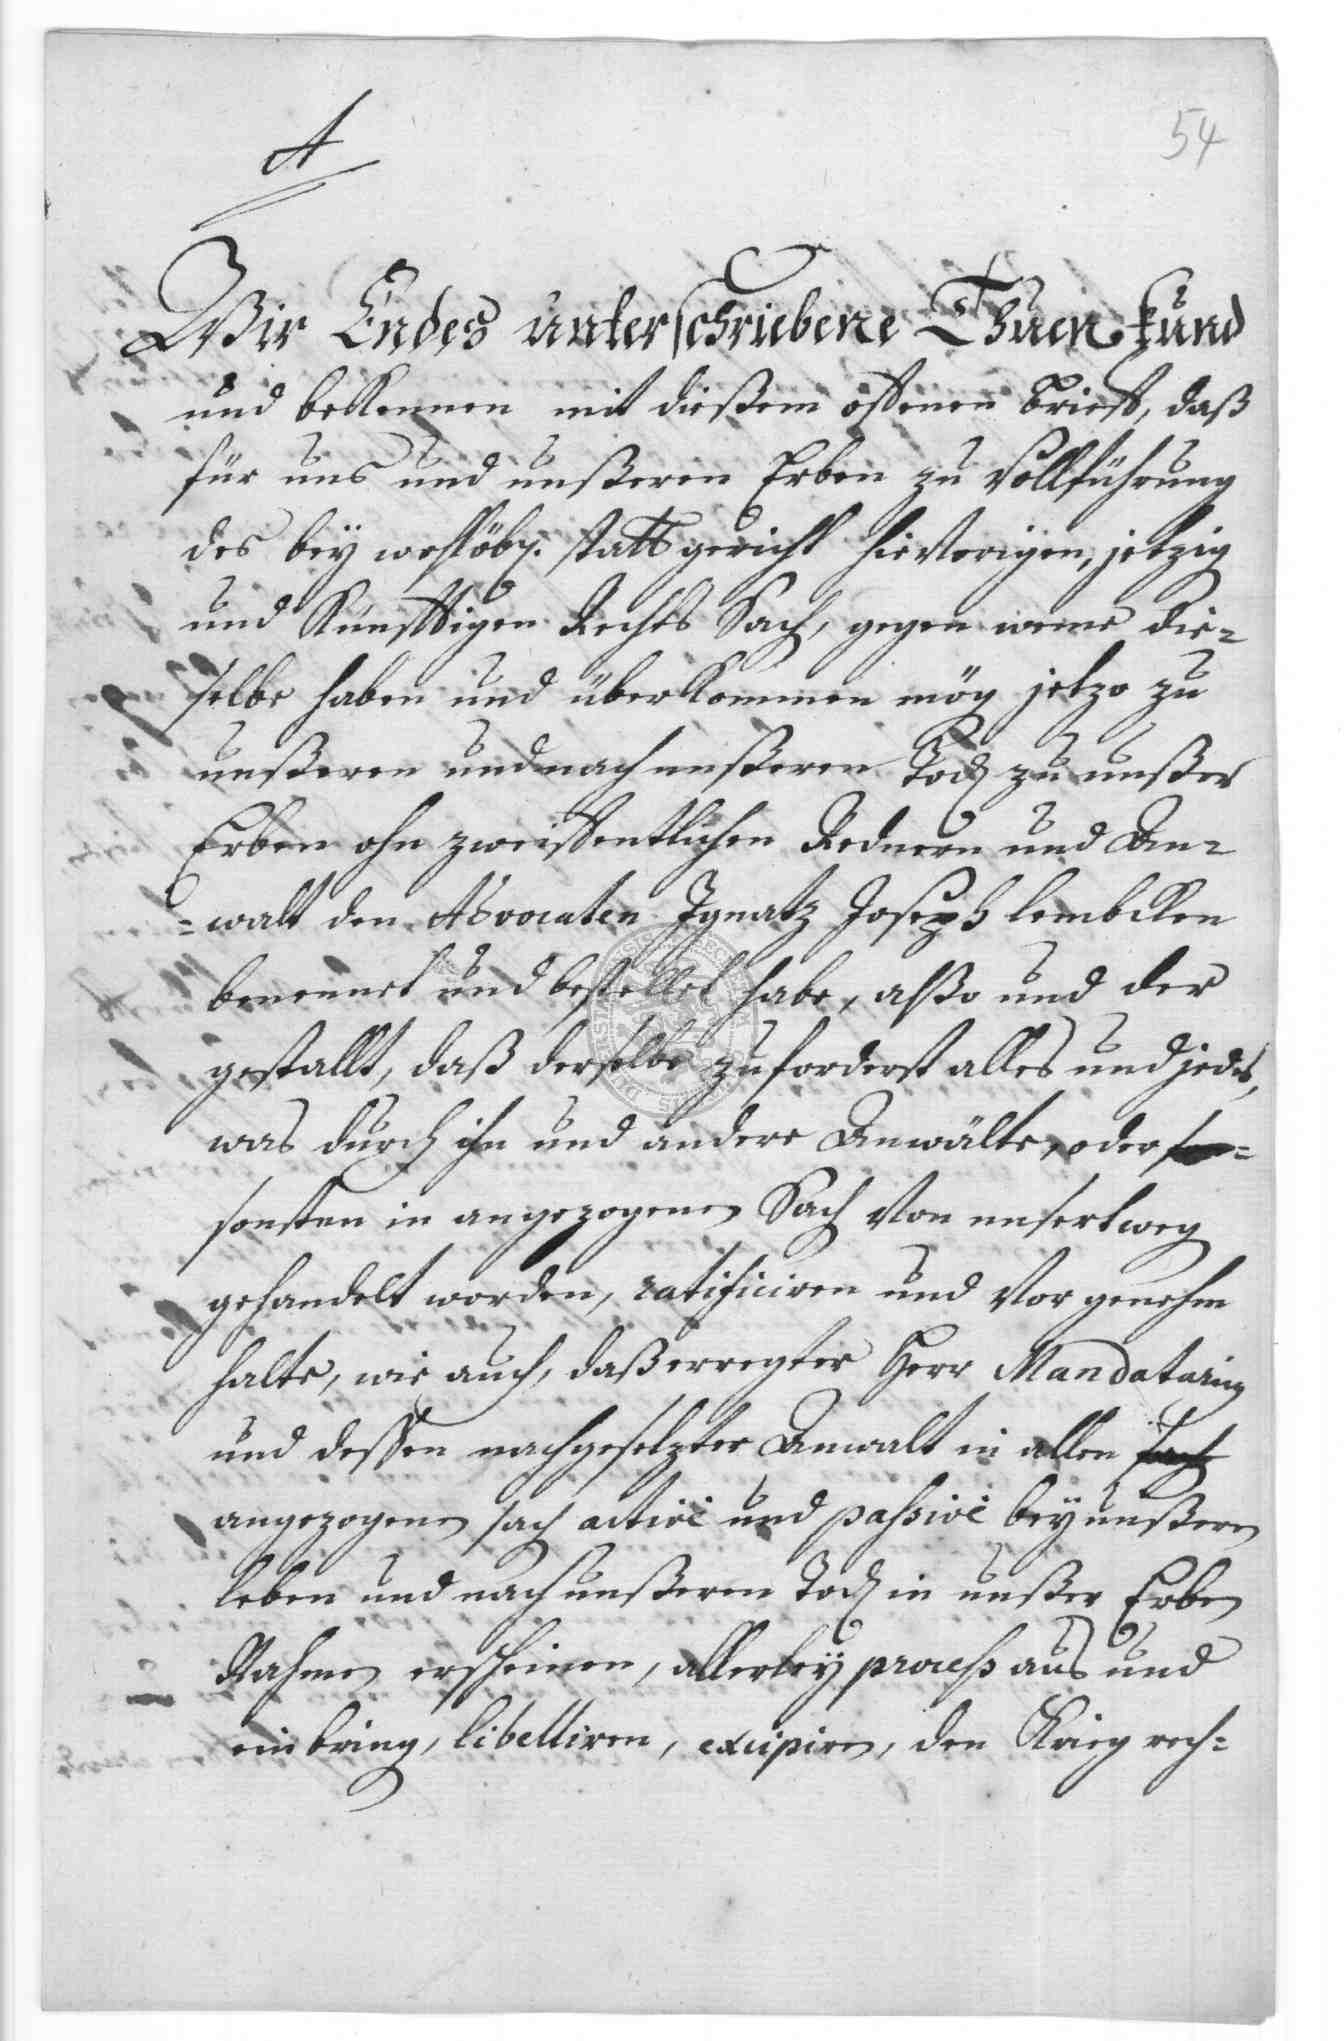 A
54
Wir Endes unterschriebene Thuen kund
und bekennen mit dießem offenen brieff, daß
für uns und unßeren Erben zu Vollführung
des bey wohllöbl. statt gericht hievorigen, jetzig
und Künfftigen Rechts Sach, gegen wenne die-
selbe haben und überkommen mög jetzo zu
unßeren und nach unßerem Tod zu unßer
Erben ohn zweiffentlichen Redneren und An-
=walt den Advocaten Ignatz Joseph lembcken
benennet und bestellet habe, alßo und der
gestallt, daß derselbe zuforderst alles und jedes,
was durch ihn und andere Anwälte, oder
sonsten in angezogener Sach von unsertweg
gehandelt worden, ratificiren und vor genehm
halte, wie auch, daß erregter Herr Mandatarius
und dessen nachgesetzter Anwalt in allen
angezogenen sach activè und passivè bey unßerem
leben und nach unßerem Tod in unßer Erben
Nahmen erscheinen, allerley process aus und
einbring, libelliren, excipiren, den Krieg rech=